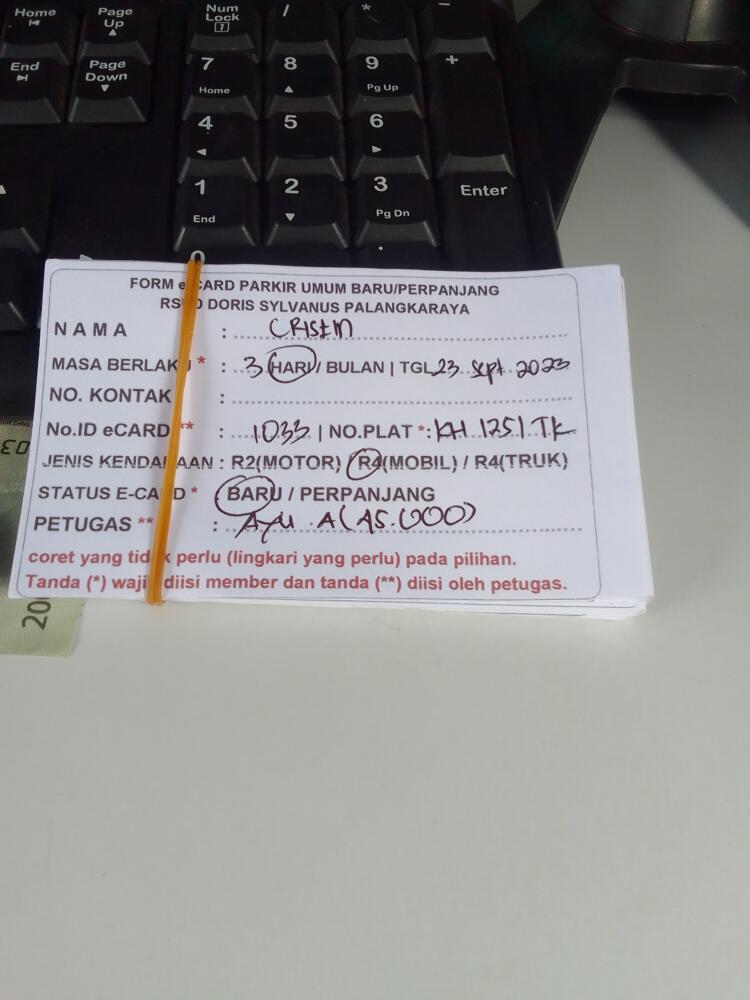 Home
Page Up
Num Lock
/
*
-
End
Page Down
7 Home
8
9 Pg Up
+
4
5
6
1 End
2
3 Pg Dn
Enter
0
.
FORM eCARD PARKIR UMUM BARU/PERPANJANG
RSUD DORIS SYLVANUS PALANGKARAYA
NAMA : CRISTIN
MASA BERLAKU * : 3 HARI / BULAN | TGL 23 Sept 2023
NO. KONTAK :
No.ID eCARD ** : 1033 | NO.PLAT *: KH 1251 TK
JENIS KENDARAAN : R2(MOTOR) / R4(MOBIL) / R4(TRUK)
STATUS E-CARD * BARU / PERPANJANG
PETUGAS ** : Ayu A (45.000)
coret yang tidak perlu (lingkari yang perlu) pada pilihan.
Tanda (*) wajib diisi member dan tanda (**) diisi oleh petugas.